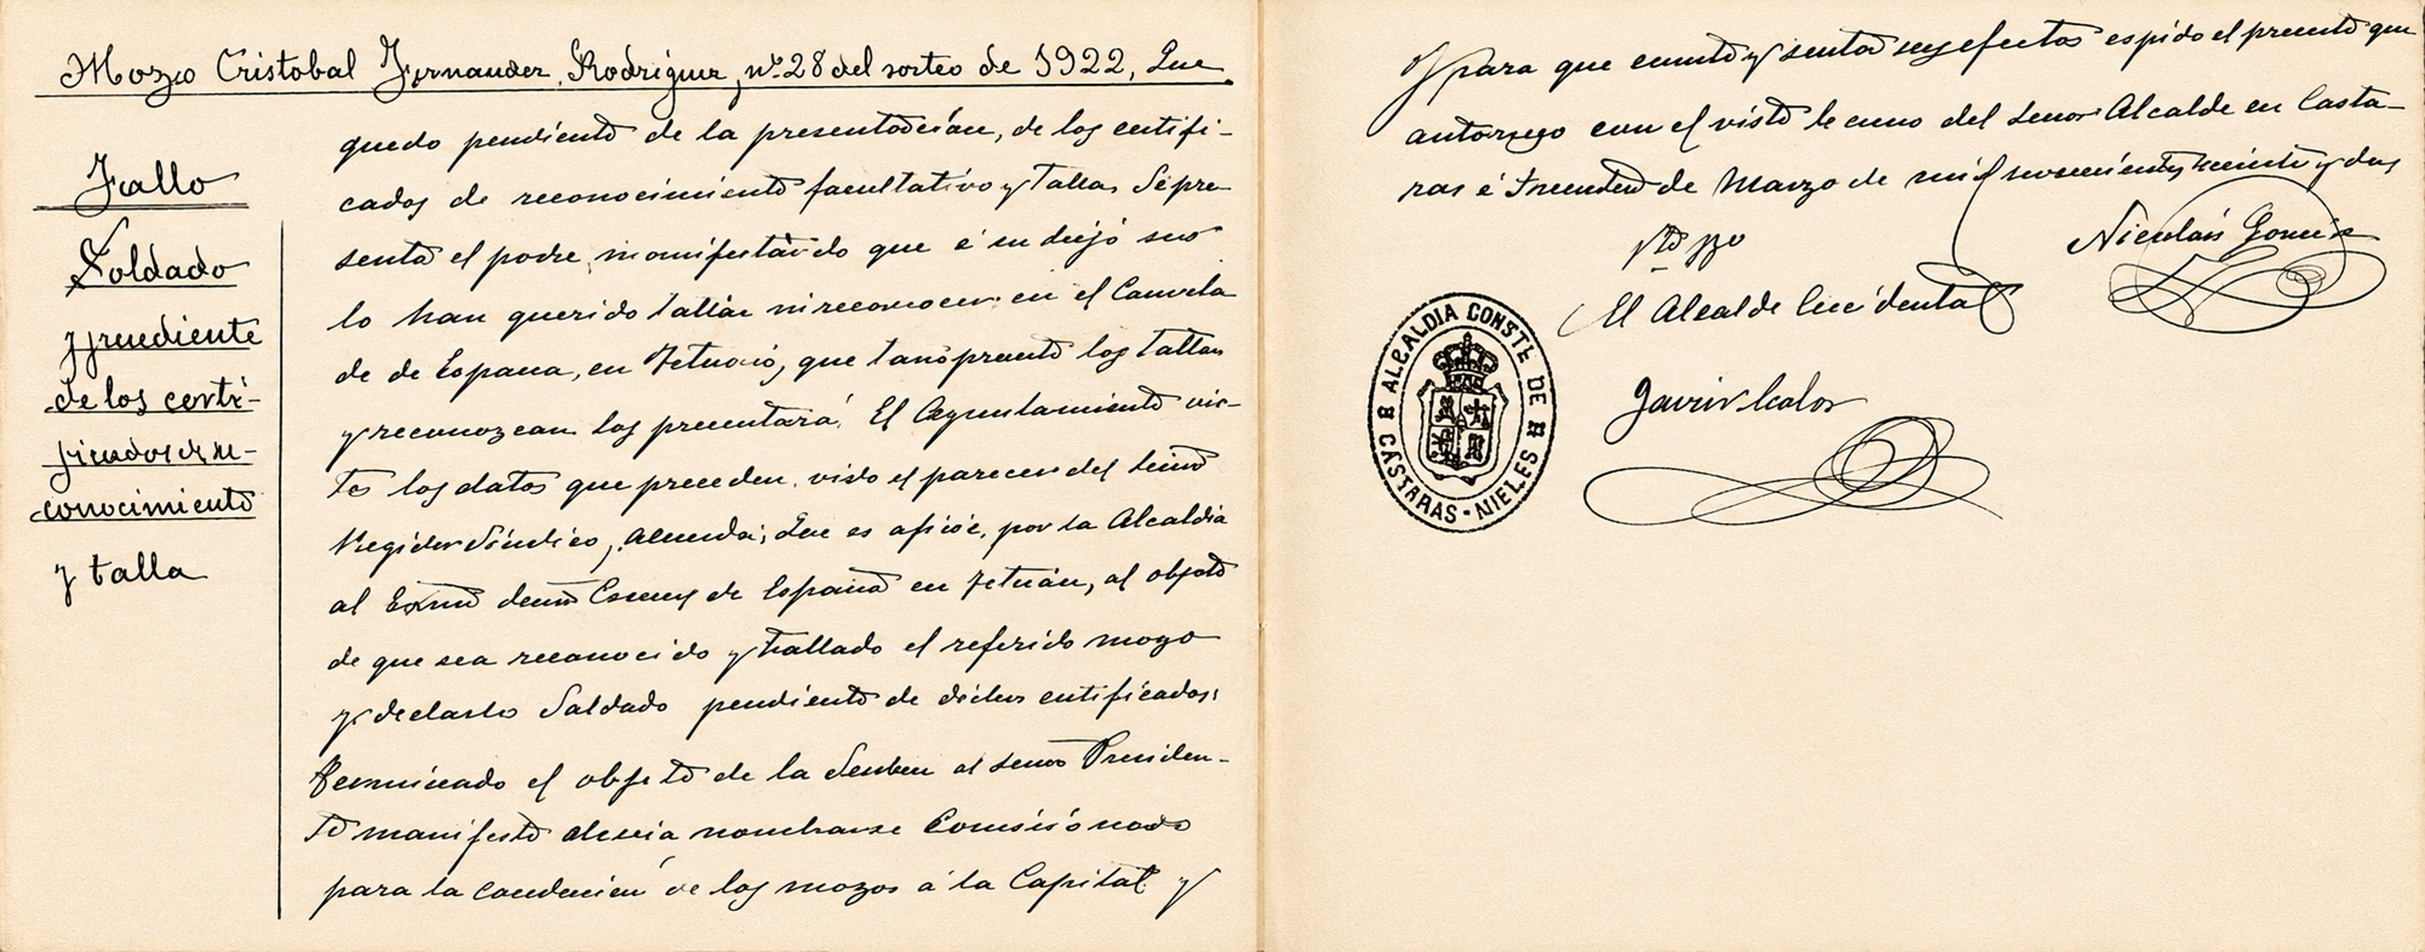 Mozo Cristobal Fernandez Rodriguez, nº 28 del sorteo de 1922, Que
Fallo
Soldado
y pendiente
de los certi-
ficados de re-
conocimiento
y talla
quedo pendiente de la presentación, de los certifi-
cados de reconocimiento facultativo y talla, Se pre-
senta el padre, manifestando que á su hijo no
lo han querido tallar ni reconocer en el Consula
do de España, en Tetuán, que tan pronto los tallen
y reconozcan los presentará. El Ayuntamiento vis-
tos los datos que preceden, visto el parecer del Señor
Regidor Síndico, acuerda; Que se oficie, por la Alcaldia
al Exmo Señor Consul de España en Tetuán, al objeto
de que sea reconocido y tallado el referido mozo
y declarlo Soldado pendiente de dichos certificados;
Terminado el objeto de la Sesion el Señor Presiden-
te manifestó devia nombrarse Comisionado
para la conducción de los mozos á la Capital y
Y para que conste y surta sus efectos espido el presente que
autorizo con el visto bueno del Señor Alcalde en Casta-
ras á de Marzo de mil novecientos veinte y dos
Vto Bno
Nicolás Gomez
El Alcalde Accidental
ALCALDIA CONSTE DE CASTARAS - NIELES
Javier